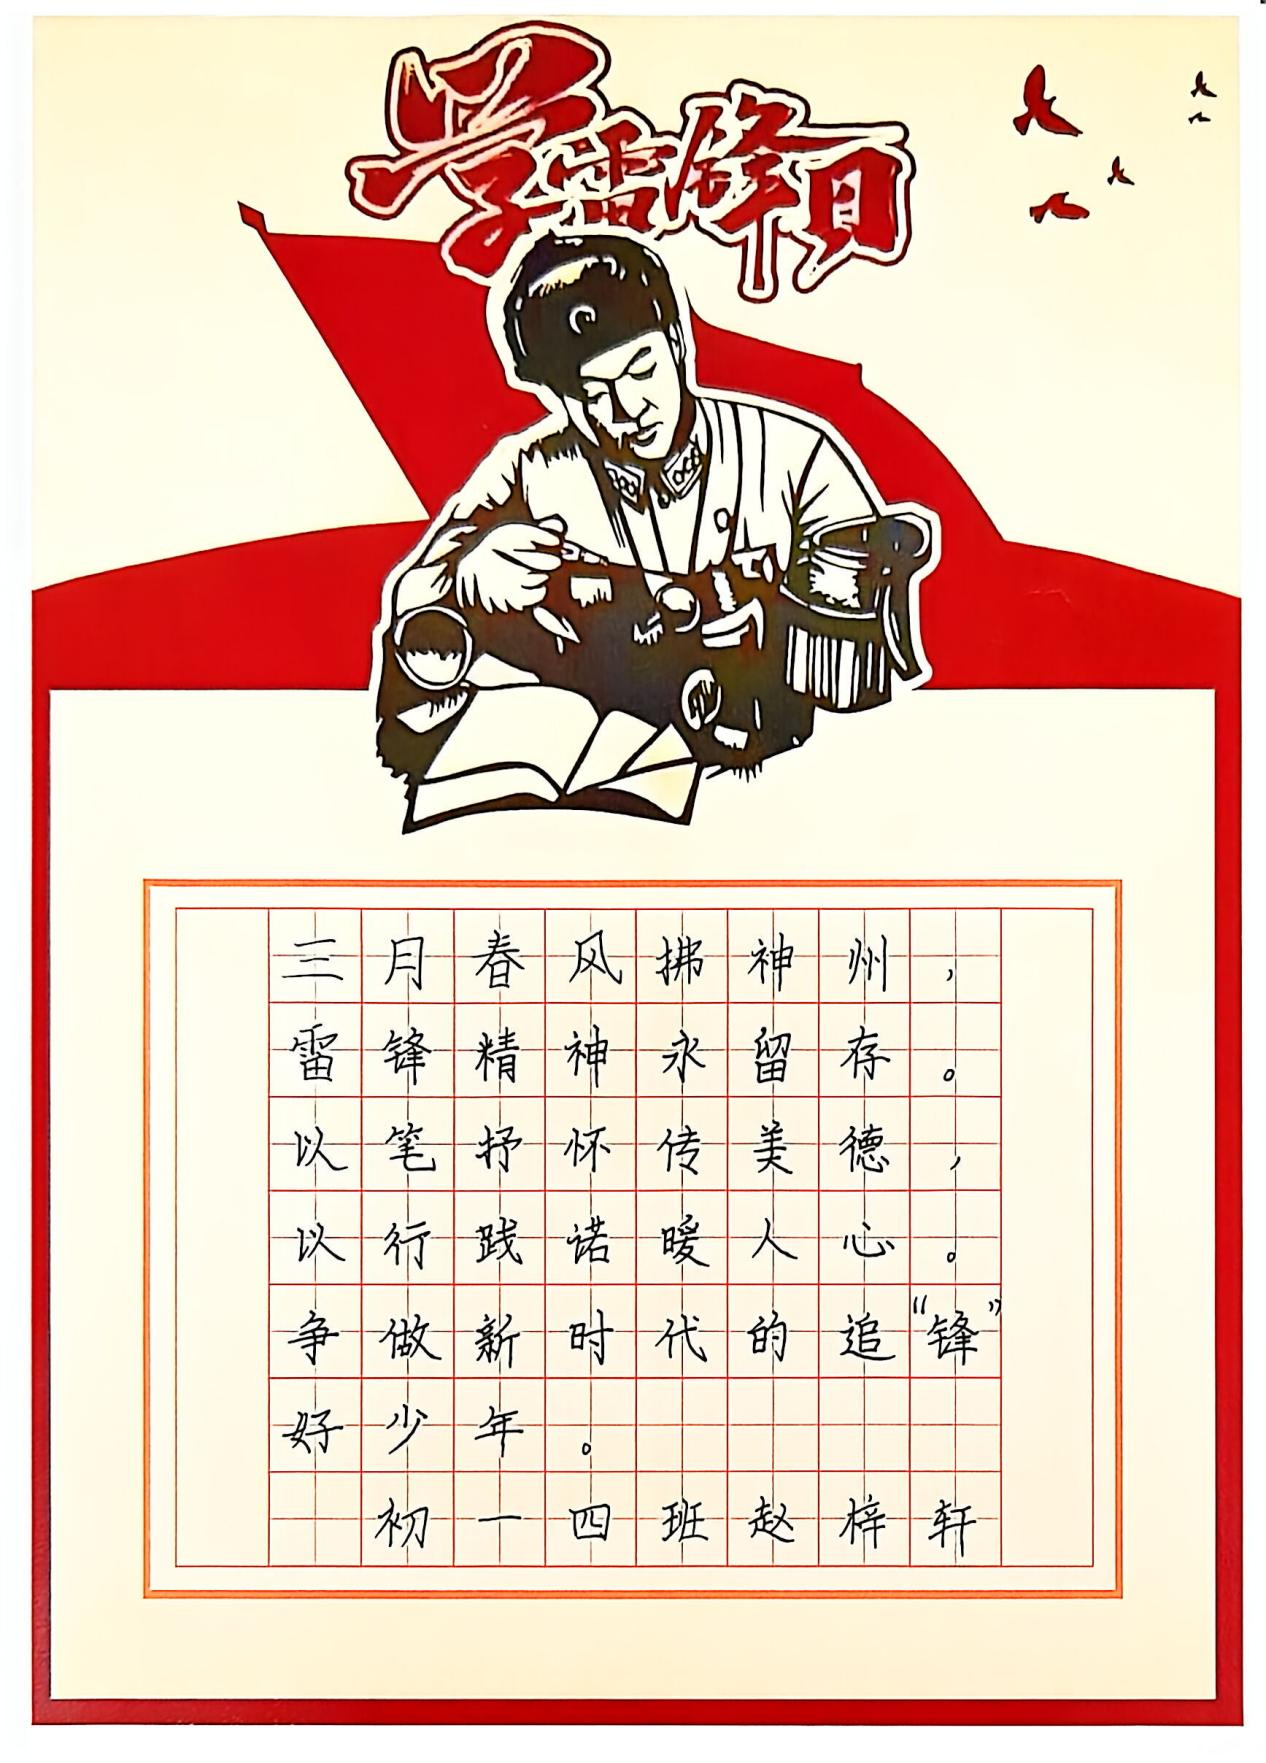 学雷锋日
三月春风拂神州，
雷锋精神永留存。
以笔抒怀传美德，
以行践诺暖人心。
争做新时代的追“锋”
好少年。
初一四班赵梓轩